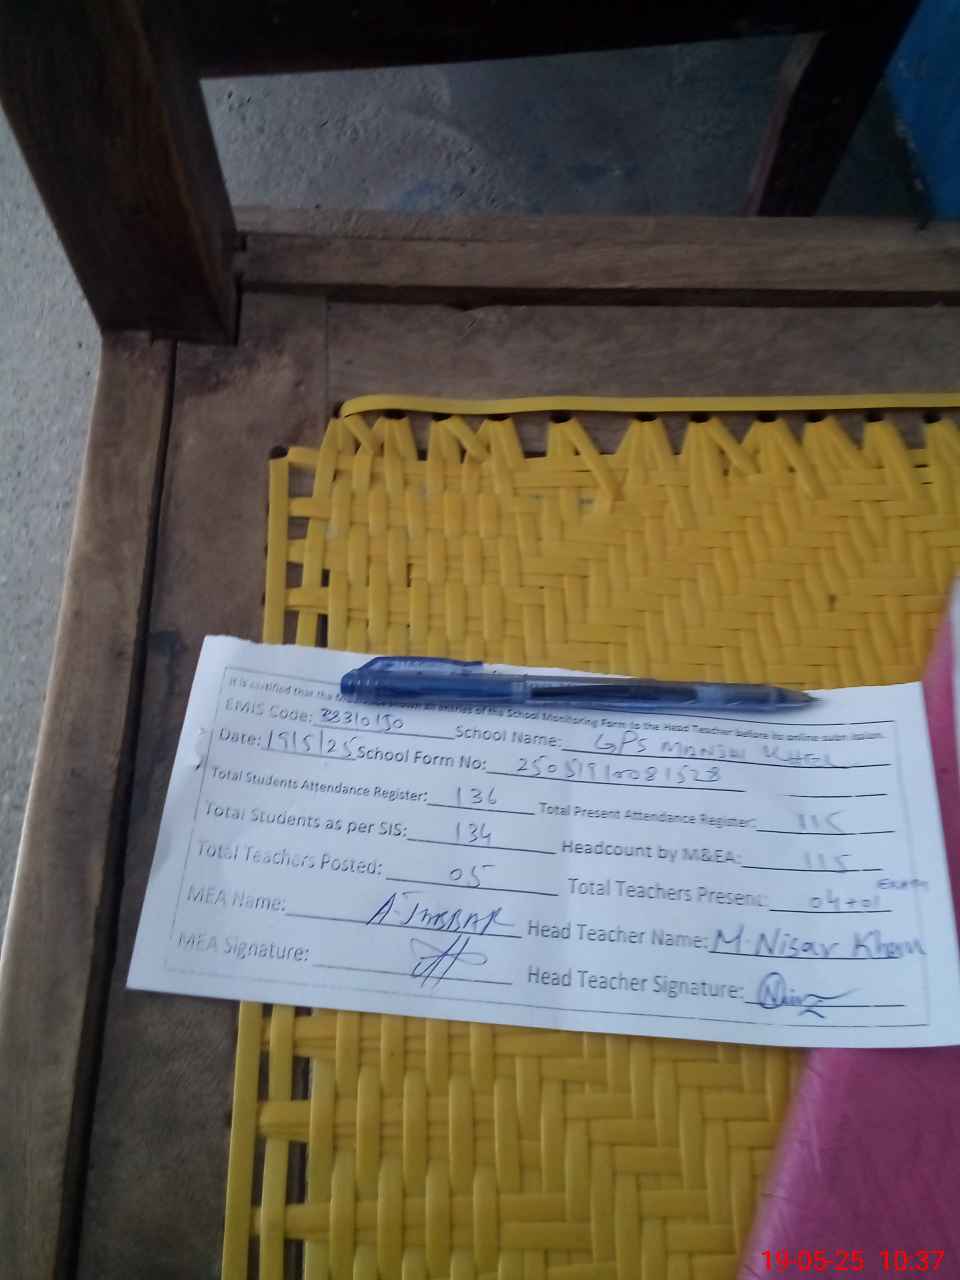 It is certified that the shown all entries of the School Monitoring Form to the Head Teacher before its online submission.
EMIS Code: 38310150 School Name: GPS
Date: 19/5/25 School Form No: 25051910081528
Total Students Attendance Register: 136 Total Present Attendance Register: 115
Total Students as per SIS: 134 Headcount by M&EA: 115
Total Teachers Posted: 05 Total Teachers Present: 04+01 Exam
MEA Name: A-JABBAR Head Teacher Name: M. Nisar Khan
MEA Signature: Head Teacher Signature:
19-05-25 10:37